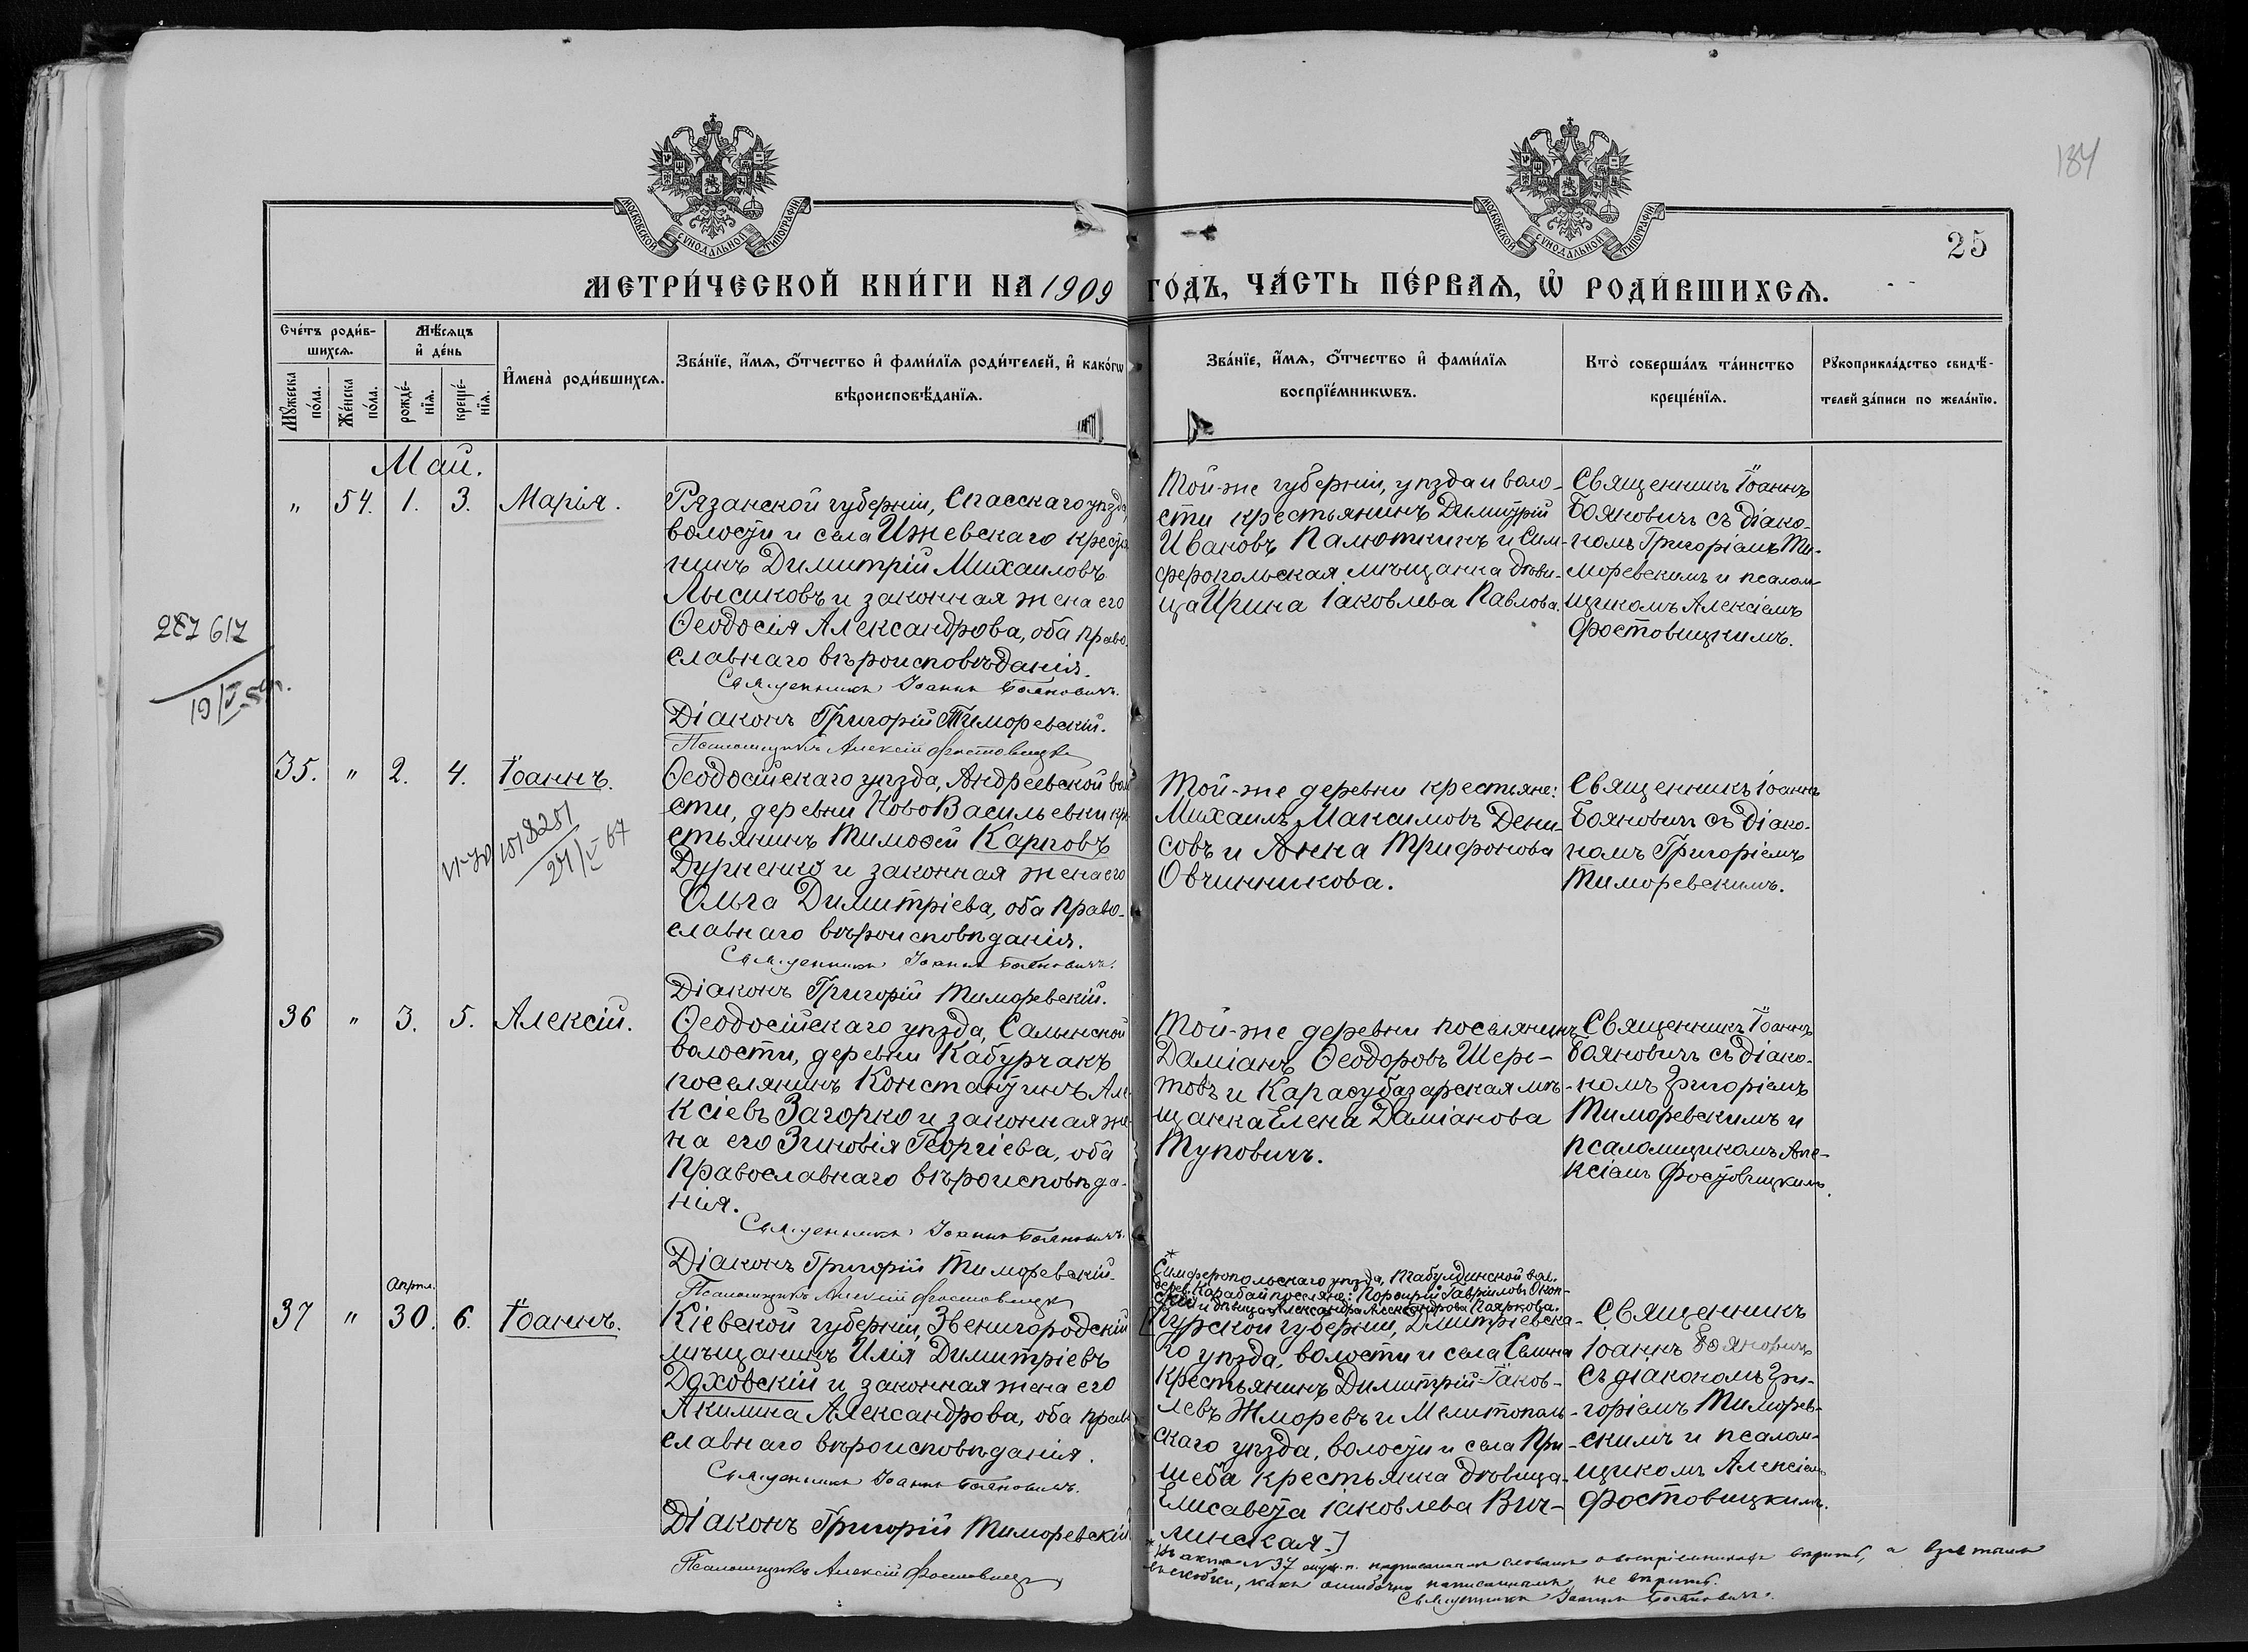 184
МОСКОВСКОЙ СУНОДАЛЬНОЙ ТИПОГРАФІИ
МОСКОВСКОЙ СУНОДАЛЬНОЙ ТИПОГРАФІИ
25
МЕТРИ́ЧЕСКОЙ КНИ́ГИ НА 1909 ГО́ДЪ, ЧА́СТЬ ПЕ́РВАѦ, Ѡ РОДИ́ВШИХСѦ.
Сче́тъ роди́в-
шихсѧ.
Мꙋ́жеска по́ла.
Же́нска по́ла.
Мѣ́сѧцъ
и҆ де́нь
рожде́-
нїѧ.
креще́-
нїѧ.
И҆мена̀ роди́вшихсѧ.
Зва́нїе, и҆́мѧ, ѻ҆́тчество и҆ фами́лїѧ роди́телей, и҆ како́гѡ
вѣроисповѣ́данїѧ.
Зва́нїе, и҆́мѧ, ѻ҆́тчество и҆ фами́лїѧ
воспрїе́мникѡвъ.
Кто̀ соверша́лъ та́инство
креще́нїѧ.
Рꙋкоприкла́дство свидѣ́-
телей за́писи по жела́нїю.
Май.
" 54. 1. 3. Марія.
Рязанской губерніи, Спасскаго уѣзда,
волости и села Ижевскаго крестья
нинъ Димитрій Михаиловъ
Лысиковъ и законная жена его
Ѳеодосія Александрова, оба право-
славнаго вѣроисповѣданія.
Священникъ Іоаннъ Бояновичъ.
Діаконъ Григорій Тиморевскій.
Псаломщикъ Алексій Фостовицкій
Той-же губерніи, уѣзда и воло-
сти крестьянинъ Димитрій
Ивановъ Палюткинъ и Сим-
феропольская мѣщанка дѣви-
ца Ирина Іаковлева Павлова.
Священникъ Іоаннъ
Бояновичъ съ діако-
номъ Григоріемъ Ти-
моревскимъ и псалом
щикомъ Алексіемъ
Фостовицкимъ.
19/V
35. " 2. 4. Іоаннъ.
Ѳеодосійскаго уѣзда, Андреевской воло
сти, деревни НовоВасильевки кре
стьянинъ Тимоѳей Карповъ
Дурненко и законная жена его
Ольга Димитріева, оба право-
славнаго вѣроисповѣданія.
Священникъ Іоаннъ Бояновичъ.
Діаконъ Григорій Тиморевскій.
Той-же деревни крестьяне:
Михаилъ Максимовъ Дени-
совъ и Анна Трифонова
Овчинникова.
Священникъ Іоаннъ
Бояновичъ съ діако-
номъ Григоріемъ
Тиморевскимъ.
36 " 3. 5. Алексій.
Ѳеодосійскаго уѣзда, Салынской
волости, деревни Кабурчакъ
поселянинъ Константинъ Але
ксіевъ Загорко и законная же
на его Зиновія Георгіева, оба
православнаго вѣроисповѣда-
нія.
Священникъ Іоаннъ Бояновичъ.
Діаконъ Григорій Тиморевскій.
Псаломщикъ Алексій Фостовицкій
Той-же деревни поселянинъ
Даміанъ Ѳеодоровъ Шере-
товъ и Карасубазарская мѣ-
щанка Елена Даміанова
Туповичъ.
Священникъ Іоаннъ
Бояновичъ съ діако-
номъ Григоріемъ
Тиморевскимъ и
псаломщикомъ Але-
ксіемъ Фостовицкимъ.
апрѣл.
37 " 30. 6. Іоаннъ.
Кіевской губерніи, Звенигородскій
мѣщанинъ Илія Димитріевъ
Доховскій и законная жена его
Акилина Александрова, оба право
славнаго вѣроисповѣданія.
Священникъ Іоаннъ Бояновичъ.
Діаконъ Григорій Тиморевскій
Псаломщикъ Алексій Фостовицкій
* Симферопольскаго уѣзда, Табулдинской вол.
дерев. Карабай поселяне: Порфирій Гавріиловъ
и дѣвица Александра Александрова Пояркова.
[Курской губерніи, Димитріевска-
го уѣзда, волости и села Селина
крестьянинъ Димитрій Іаков-
левъ Жморевъ и Мелитополь-
скаго уѣзда, волости и села При-
шеба крестьянка дѣвица
Елисавета Іаковлева Вич-
линская.]
Священникъ
Іоаннъ Бояновичъ
съ діакономъ Гри-
горіемъ Тиморев-
скимъ и псалом-
щикомъ Алексіемъ
Фостовицкимъ.
* Въ актѣ № 37 надписаннымъ словамъ о воспріемникахъ вѣрить, а взятымъ
въ скобки, какъ ошибочно написаннымъ, не вѣрить.
Священникъ Іоаннъ Бояновичъ.